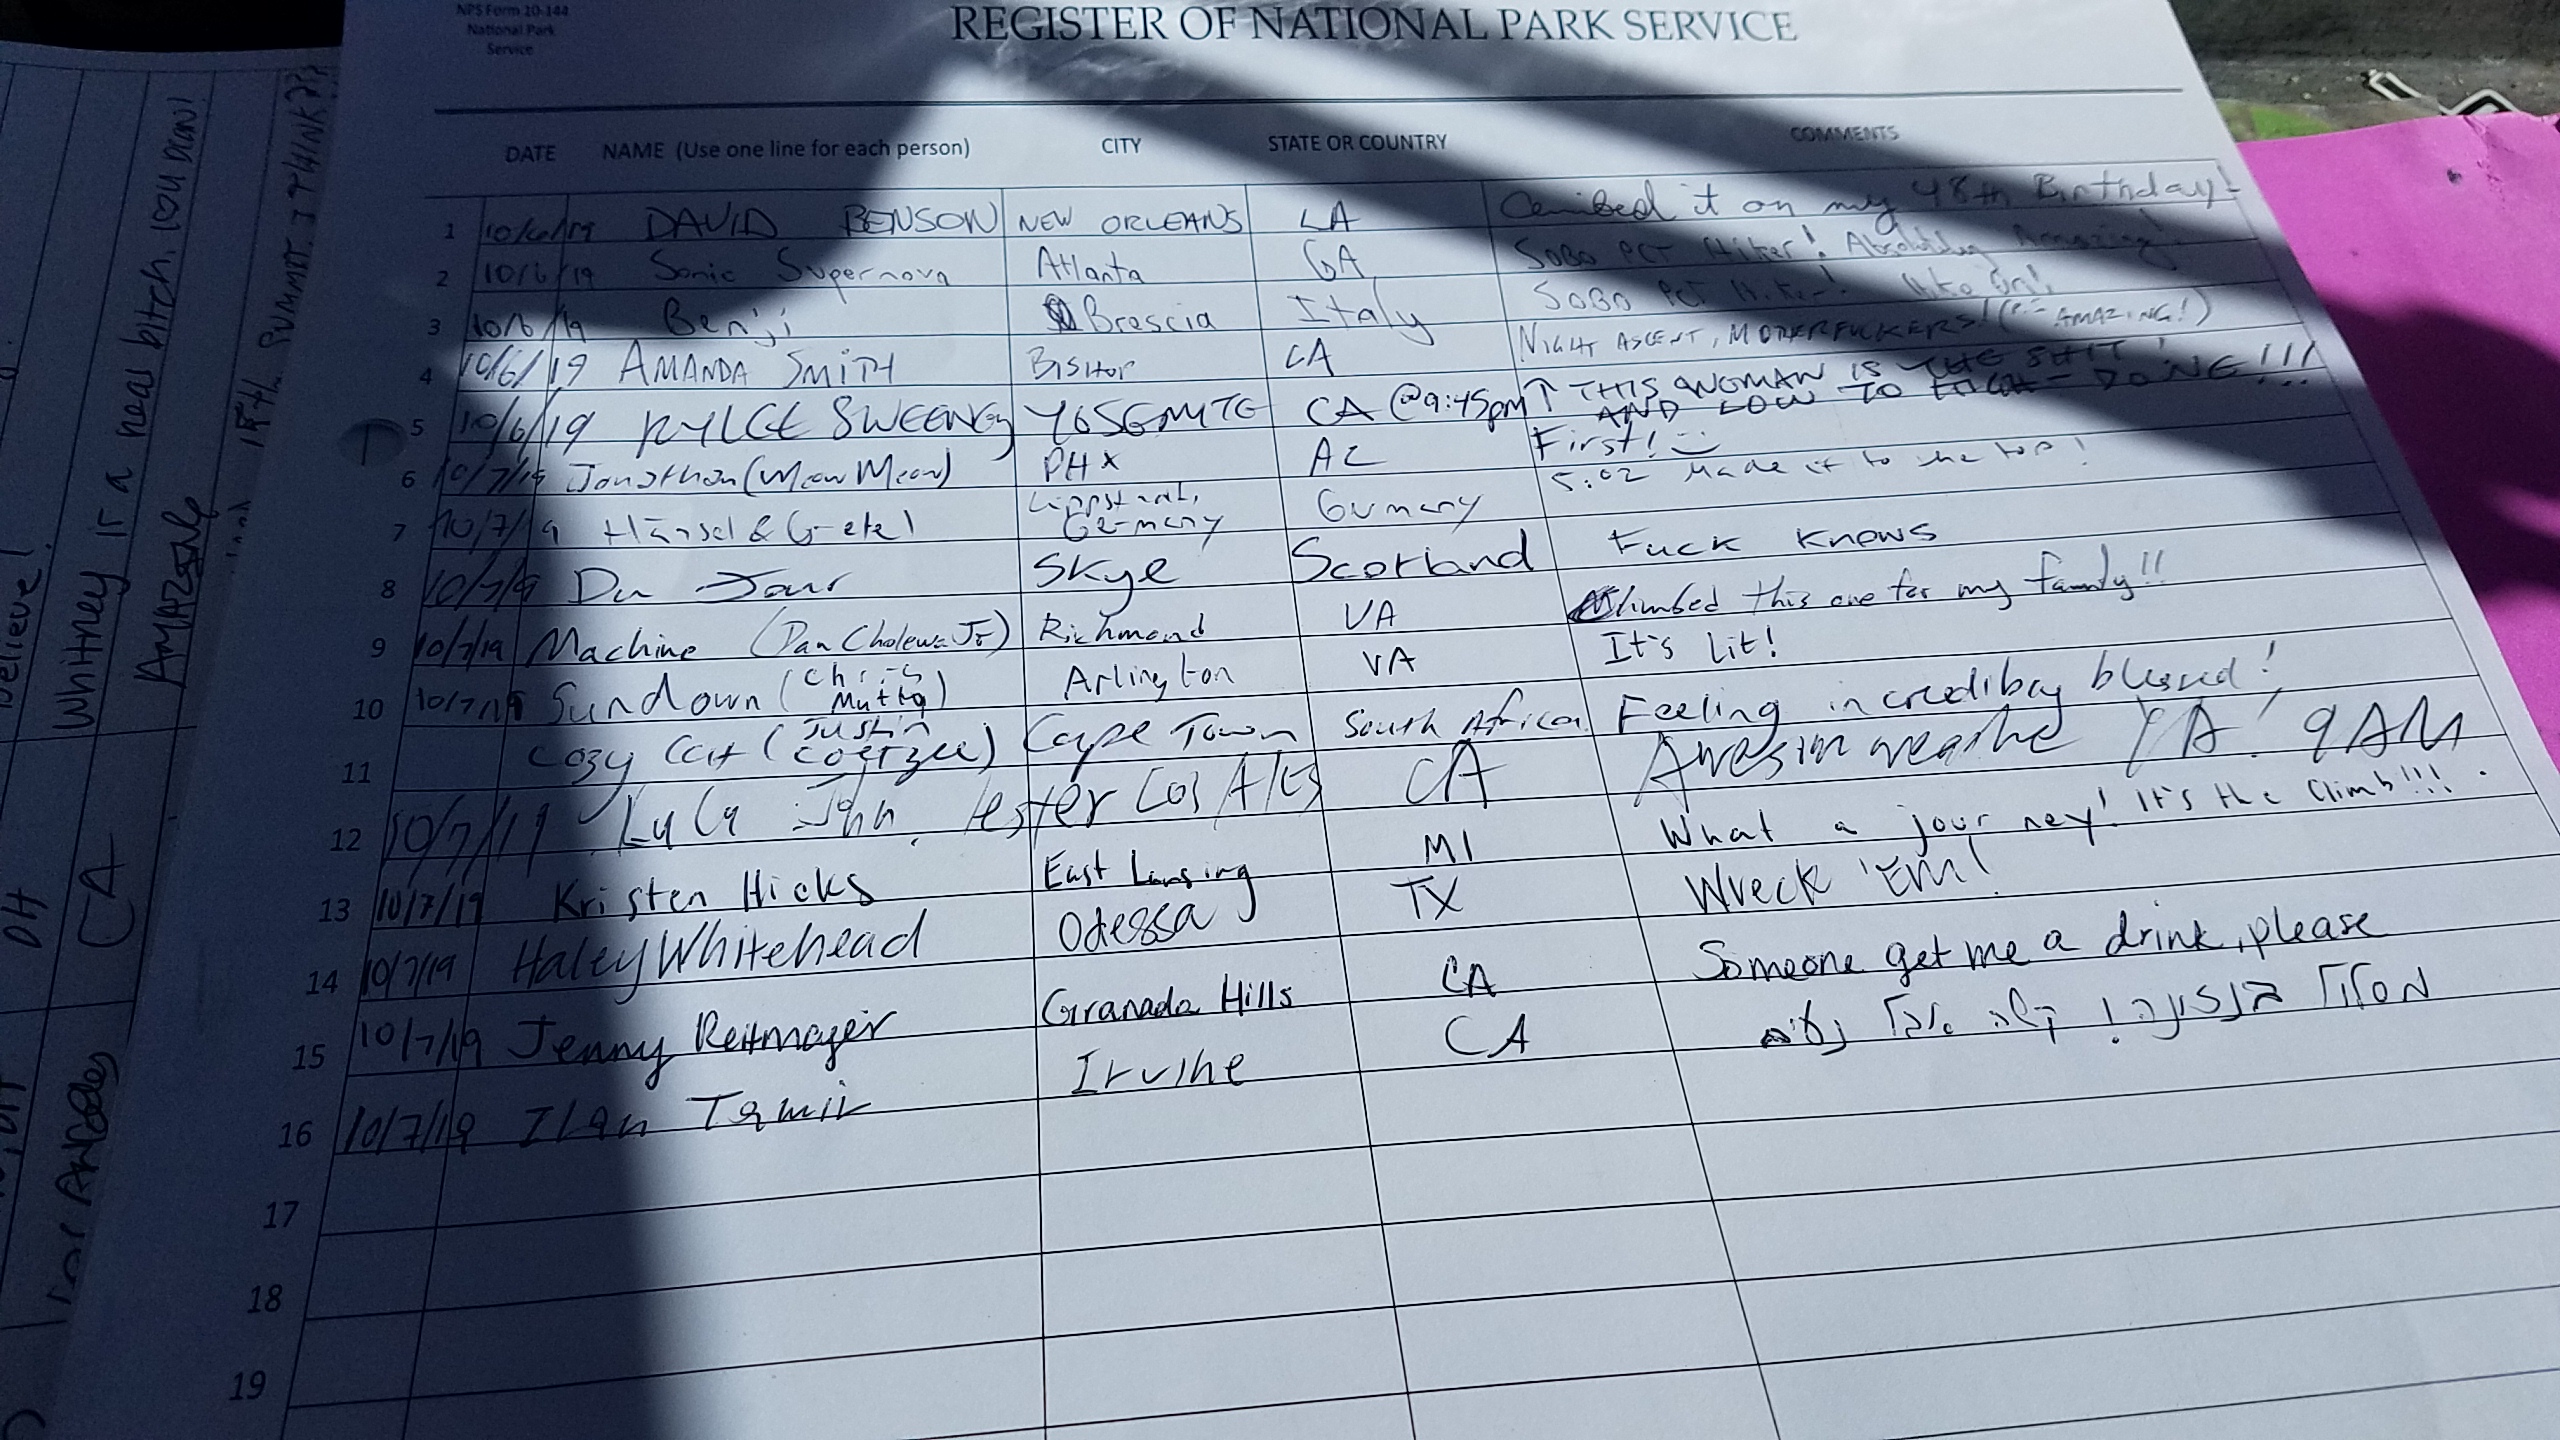 NPS Form 10-144
National Park
Service
REGISTER OF NATIONAL PARK SERVICE
DATE NAME (Use one line for each person) CITY STATE OR COUNTRY COMMENTS
1 10/6/19 DAVID BENSON NEW ORLEANS LA it on my 48th Birthday!
2 10/6/19 Sonic Supernova Atlanta GA SOBO PCT Hiker! Absolutely Amazing!
3 10/6/19 Benji Brescia Italy SOBO PCT Hiker! Hike On!
4 10/6/19 AMANDA SMITH BISHOP CA NIGHT ASCENT, MOTHERFUCKERS! AMAZING!)
5 10/6/19 SWEENEY YOSEMITE CA @9:45pm ↑ THIS WOMAN IS THE SHIT!
AND LOW TO HIGH = DONE!!!
6 10/7/19 Jonathan (Meow Meow) PHX AZ First!
7 10/7/19 Hänsel & Gretel Lippstadt, Germany Germany 5:02 Made it to the top!
8 10/7/19 Du Jour Skye Scotland Fuck Knows
9 10/7/19 Machine (Dan Cholewa Jr) Richmond VA Climbed this one for my family!!
10 10/7/19 Sundown (Chris Mutta) Arlington VA It's Lit!
11 Cozy Cat (Justin Coetzee) Cape Town South Africa Feeling incredibly blessed!
12 10/7/19 John Lester CA 9AM
13 10/7/19 Kristen Hicks East Lansing MI What a journey! It's the Climb!!!
14 10/7/19 Haley Whitehead Odessa TX Wreck 'Em!
15 10/7/19 Jenny Reitmayer Granada Hills CA Someone get me a drink, please
16 10/7/19 Ilan Tamir Irvine CA
17
18
19
believe!
Whitney is a neat bitch. YOU DIG IN!
AMAZING
15th SUMMIT. I THINK???
DH
CA
LOS ANGELES